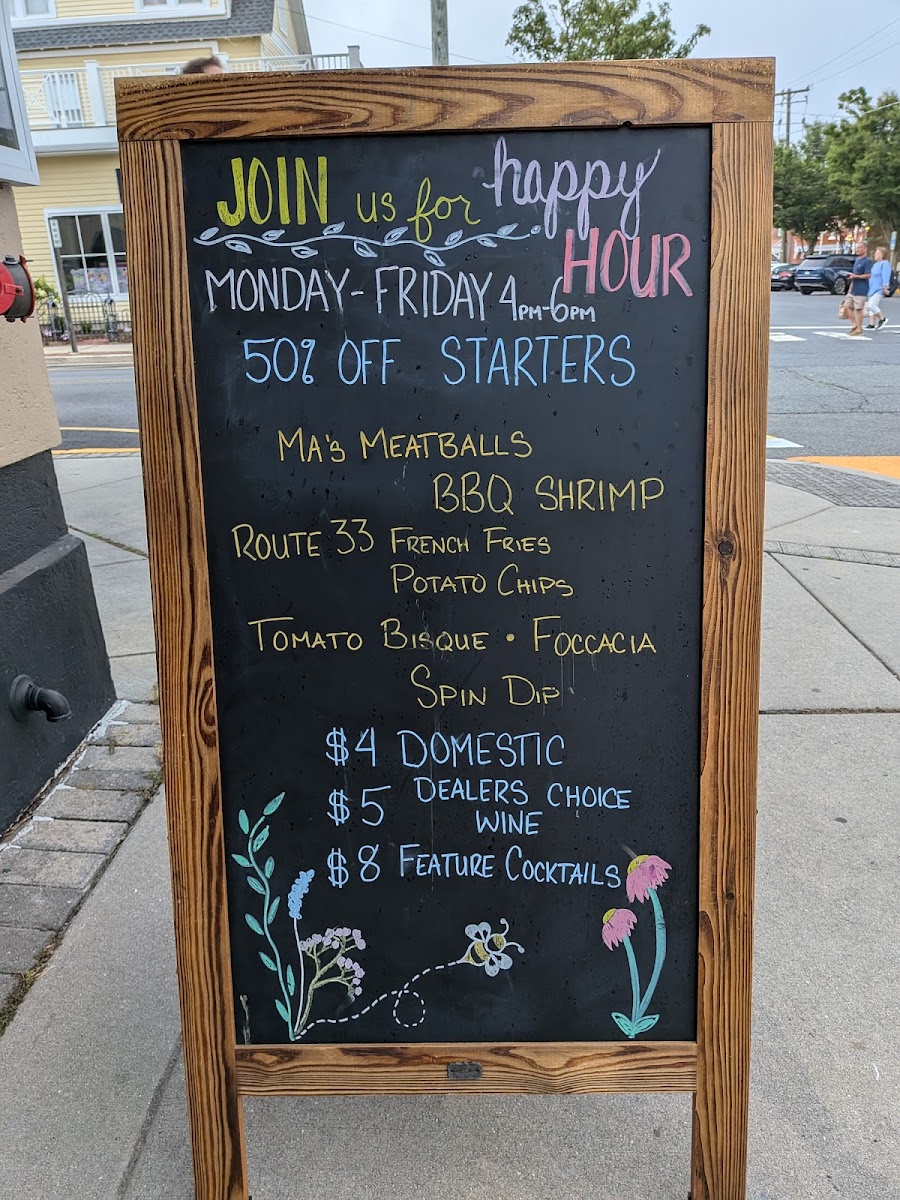 JOIN us for happy
HOUR
MONDAY-FRIDAY 4PM-6PM
50% OFF STARTERS
MA's MEATBALLS
BBQ SHRIMP
ROUTE 33 FRENCH FRIES
POTATO CHIPS
TOMATO BISQUE • FOCCACIA
SPIN DIP
$4 DOMESTIC
$5 DEALERS CHOICE
WINE
$8 FEATURE COCKTAILS